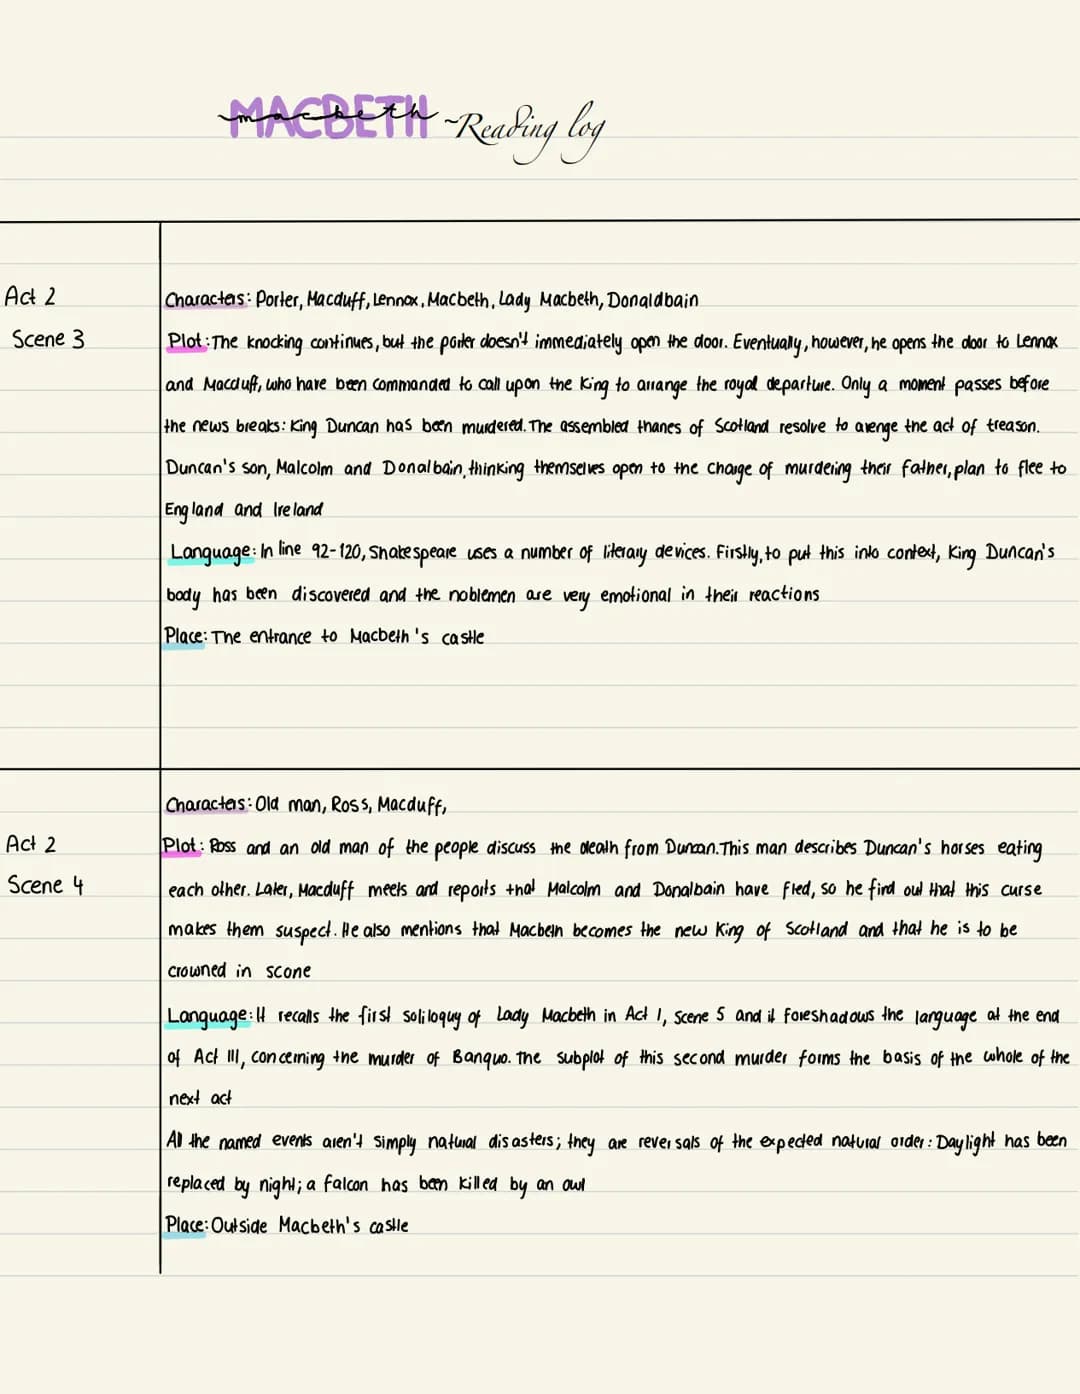 MACBETH macbeth ~Reading log
Act 2
Scene 3
Characters: Porter, Macduff, Lennox, Macbeth, Lady Macbeth, Donaldbain
Plot: The knocking continues, but the porter doesn't immediately open the door. Eventually, however, he opens the door to Lennox
and Macduff, who have been commanded to call upon the King to arrange the royal departure. Only a moment passes before
the news breaks: King Duncan has been murdered. The assembled thanes of Scotland resolve to avenge the act of treason.
Duncan's son, Malcolm and Donalbain, thinking themselves open to the charge of murdering their father, plan to flee to
England and Ireland
Language: In line 92-120, Shakespeare uses a number of literary devices. Firstly, to put this into context, King Duncan's
body has been discovered and the noblemen are very emotional in their reactions
Place: The entrance to Macbeth's castle
Act 2
Scene 4
Characters: Old man, Ross, Macduff,
Plot: Ross and an old man of the people discuss the death from Duncan. This man describes Duncan's horses eating
each other. Later, Macduff meets and reports that Malcolm and Donalbain have fled, so he find out that this curse
makes them suspect. He also mentions that Macbeth becomes the new King of Scotland and that he is to be
crowned in scone
Language: It recalls the first soliloquy of Lady Macbeth in Act I, Scene 5 and it foreshadows the language at the end
of Act III, concerning the murder of Banquo. The subplot of this second murder forms the basis of the whole of the
next act
All the named events aren't simply natural disasters; they are reversals of the expected natural order: Daylight has been
replaced by night; a falcon has been killed by an owl
Place: Outside Macbeth's castle